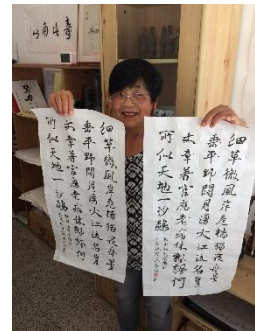 細草微風岸危檣獨夜舟星
垂平野闊月湧大江流名豈
文章著官應老病休飄飄何
所似天地一沙鷗
細草微風岸危檣獨夜舟星
垂平野闊月湧大江流名豈
文章著官應老病休飄飄何
所似天地一沙鷗